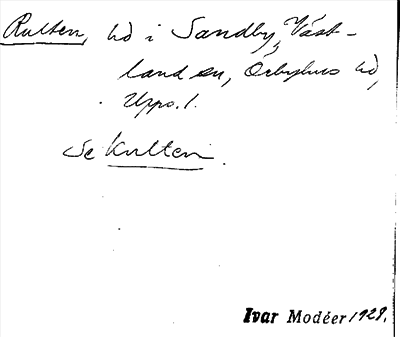 Rulten, hd i Sandby, Väst-
land sn, Örbyhus hd,
Upps. l.
Se Kulten.
Ivar Modéer 1929.